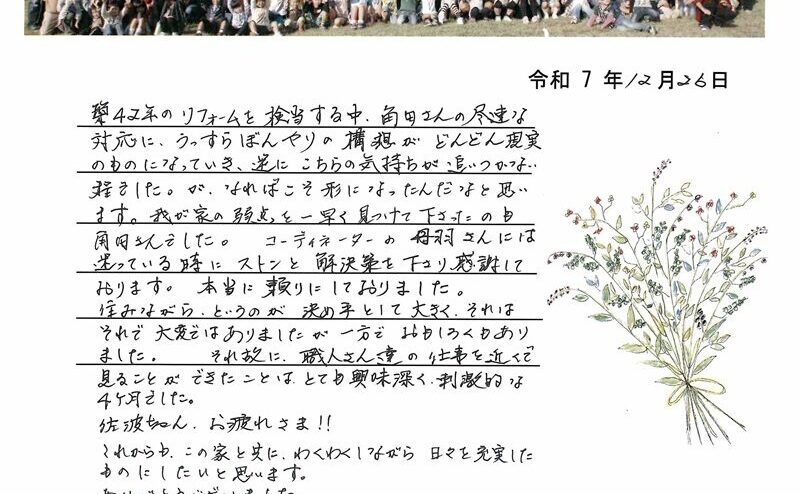 令和 7 年 12 月 26 日
築42年のリフォームを検当する中、角田さんの尽速な
対応に、うっすらぼんやりの構想がどんどん現実
のものになっていき、逆にこちらの気持ちが追いつかない
程でした。が、なればこそ形になったんだなと思い
ます。我が家の弱点を一早く見つけて下さったのも
角田さんでした。 コーディネーターの丹羽さんには
迷っている時にストンと解決策を下さり感謝して
おります。本当に頼りにしておりました。
住みながら、というのが決め手として大きく、それは
それで大変ではありましたが一方でおもしろくもあり
ました。 それ故に、職人さん達の仕事を近くで
見ることができたことは、とても興味深く、刺激的な
4ヶ月でした。
佐波ちゃん、お疲れさま!!
これからも、この家と共に、わくわくしながら日々を充実した
ものにしたいと思います。
ありがとうございました